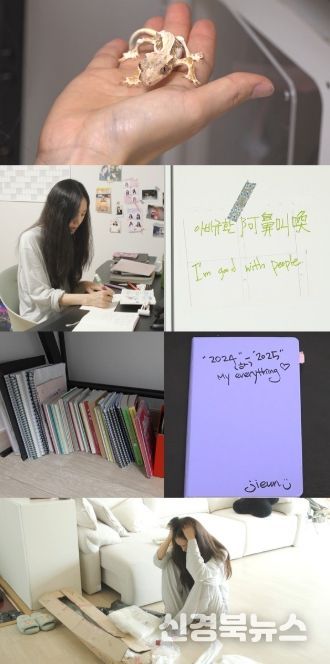 아비규환 阿鼻叫喚
I'm good with people
"2024" - "2025"
My everything♡
jieun
신경북뉴스